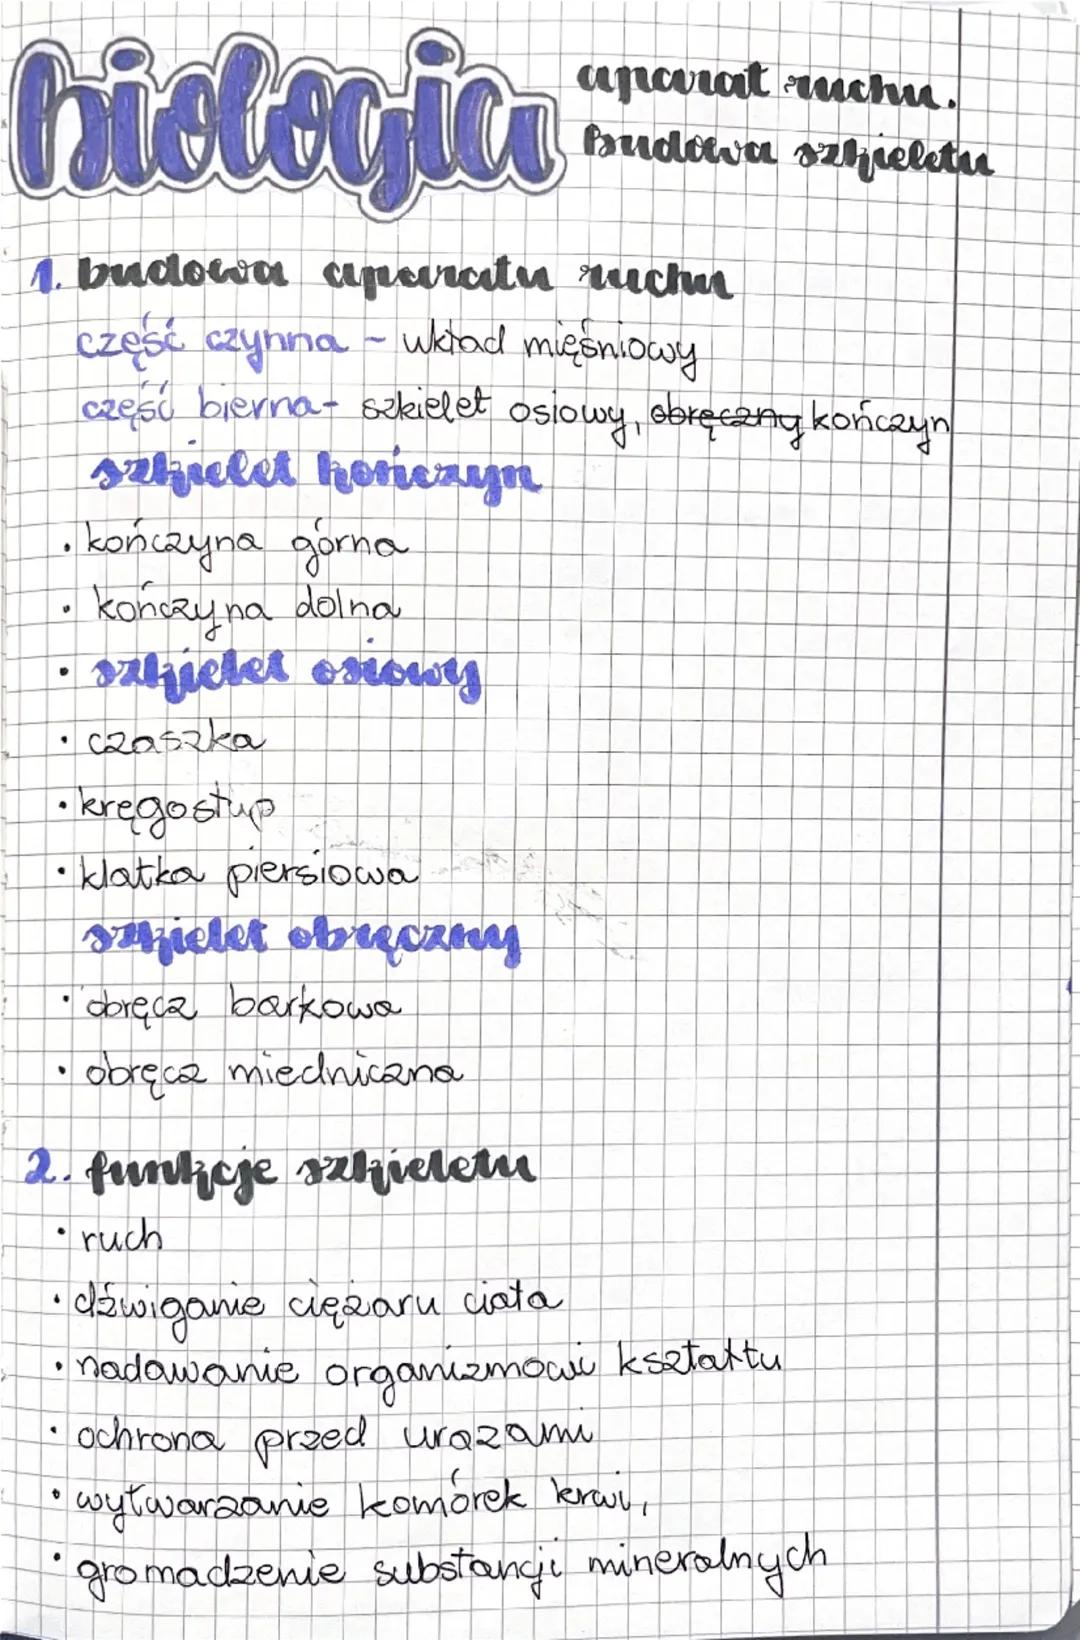 biologia
aparat ruchu.
Budowa szkieletu
1. budowa aparatu ruchu
część czynna - układ mięśniowy
część bierna - szkielet osiowy, obręczny kończyn
szkielet kończyn
· kończyna górna
· kończyna dolna
· szkielet osiowy
· czaszka
· kręgosłup
· klatka piersiowa
szkielet obręczny
· obręcz barkowa
· obręcz miedniczna
2. funkcje szkieletu
· ruch
· dźwiganie ciężaru ciała
· nadawanie organizmowi kształtu
· ochrona przed urazami
· wytwarzanie komórek krwi,
· gromadzenie substancji mineralnych